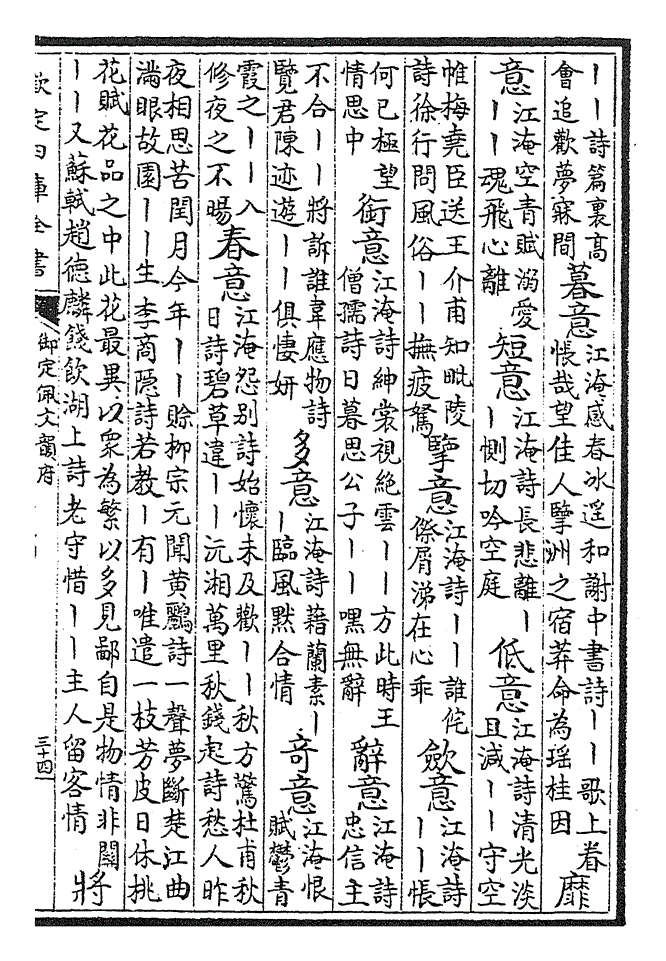 ｜｜詩篇裏高會追歡夢寐間暮意江淹感春冰遥和謝中書詩｜｜歌上眷悵哉望佳人擥洲之宿莽命為瑶桂因靡
意江淹空青賦溺愛｜｜魂飛心離短意江淹詩長悲離｜｜惻切吟空庭低意江淹詩清光淡且減｜｜守空
帷梅堯臣送王介甫知毗陵詩徐行問風俗｜｜撫疲駑擥意江淹詩｜｜誰侘傺屑涕在心乖歛意江淹詩｜｜悵
何已極望情思中銜意江淹詩紳裳視絶雲｜｜方此時王僧孺詩日暮思公子｜｜嘿無辭辭意江淹詩忠信主
不合｜｜將訴誰韋應物詩覽君陳迹遊｜｜俱悽妍多意江淹詩藉蘭素｜｜臨風黙合情奇意江淹恨賦鬱青
霞之｜｜入修夜之不暘春意江淹怨别詩始懷未及歡｜｜秋方驚杜甫秋日詩碧草違｜｜沅湘萬里秋錢起詩愁人昨
夜相思苦閏月今年｜｜賒柳宗元聞黄鸝詩一聲夢斷楚江曲滿眼故園｜｜生李商隠詩若教｜有｜唯遣一枝芳皮日休桃
花賦花品之中此花最異以衆為繁以多見鄙自是物情非關｜｜又蘇軾趙德麟餞飲湖上詩老守惜｜｜主人留客情將
欽定四庫全書
御定佩文韻府
三十四